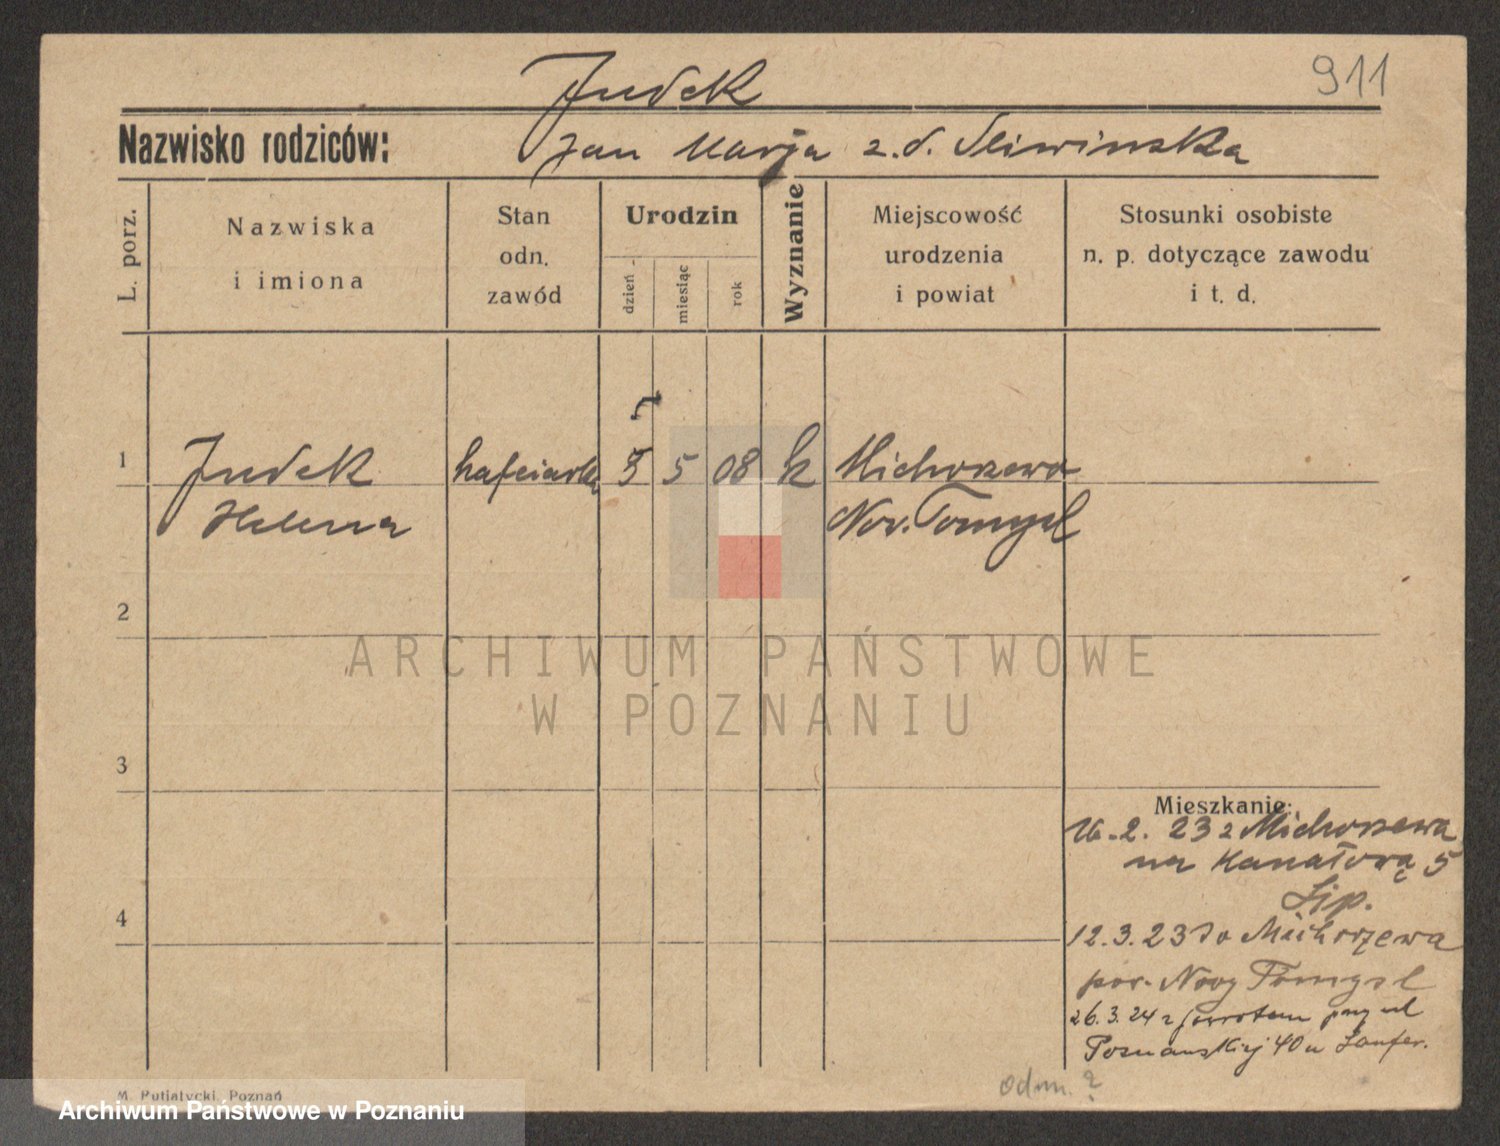 Judek
911
Nazwisko rodziców:
Jan Marja z.d. Sliwinska
L. porz.
Nazwiska
i imiona
Stan
odn.
zawód
Urodzin
dzień
miesiąc
rok
Wyznanie
Miejscowość
urodzenia
i powiat
Stosunki osobiste
n. p. dotyczące zawodu
i t. d.
5
1
Judek
hafciarka
5
08
k
Michorzewo
Helena
Now. Tomysl
2
ARCHIWUM PAŃSTWOWE
W POZNANIU
3
Mieszkanie:
16.2.23 z Michorzewa
na Kanałową 5
4
12.3.23 do Michorzewa
pow. Nowy Tomysl
26.3.24 z powrotem przy ul
Poznanskiej 40 u
M. Putiatycki, Poznań
odm. ?
Archiwum Państwowe w Poznaniu